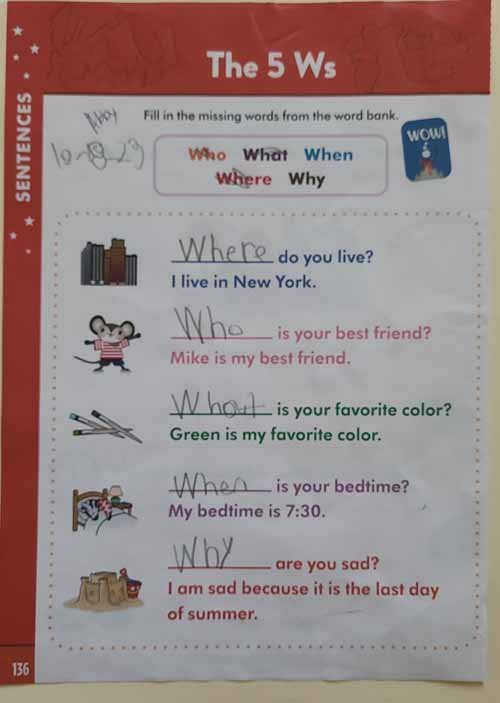 The 5 Ws
SENTENCES
Fill in the missing words from the word bank.
10-8-23
WOW!
Who What When
Where Why
Where do you live?
I live in New York.
Who is your best friend?
Mike is my best friend.
What is your favorite color?
Green is my favorite color.
When is your bedtime?
My bedtime is 7:30.
Why are you sad?
I am sad because it is the last day
of summer.
136